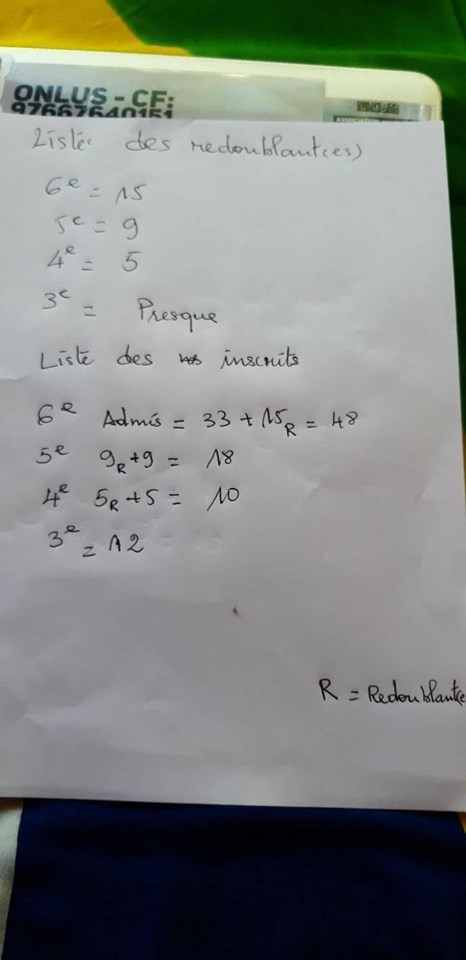 ONLUS - CF:
97667640151
Liste des redoublant(es)
6e = 15
5e = 9
4e = 5
3e = Presque
Liste des inscrits
6e Admis = 33 + 15R = 48
5e 9R + 9 = 18
4e 5R + 5 = 10
3e = 12
R = Redoublant(e